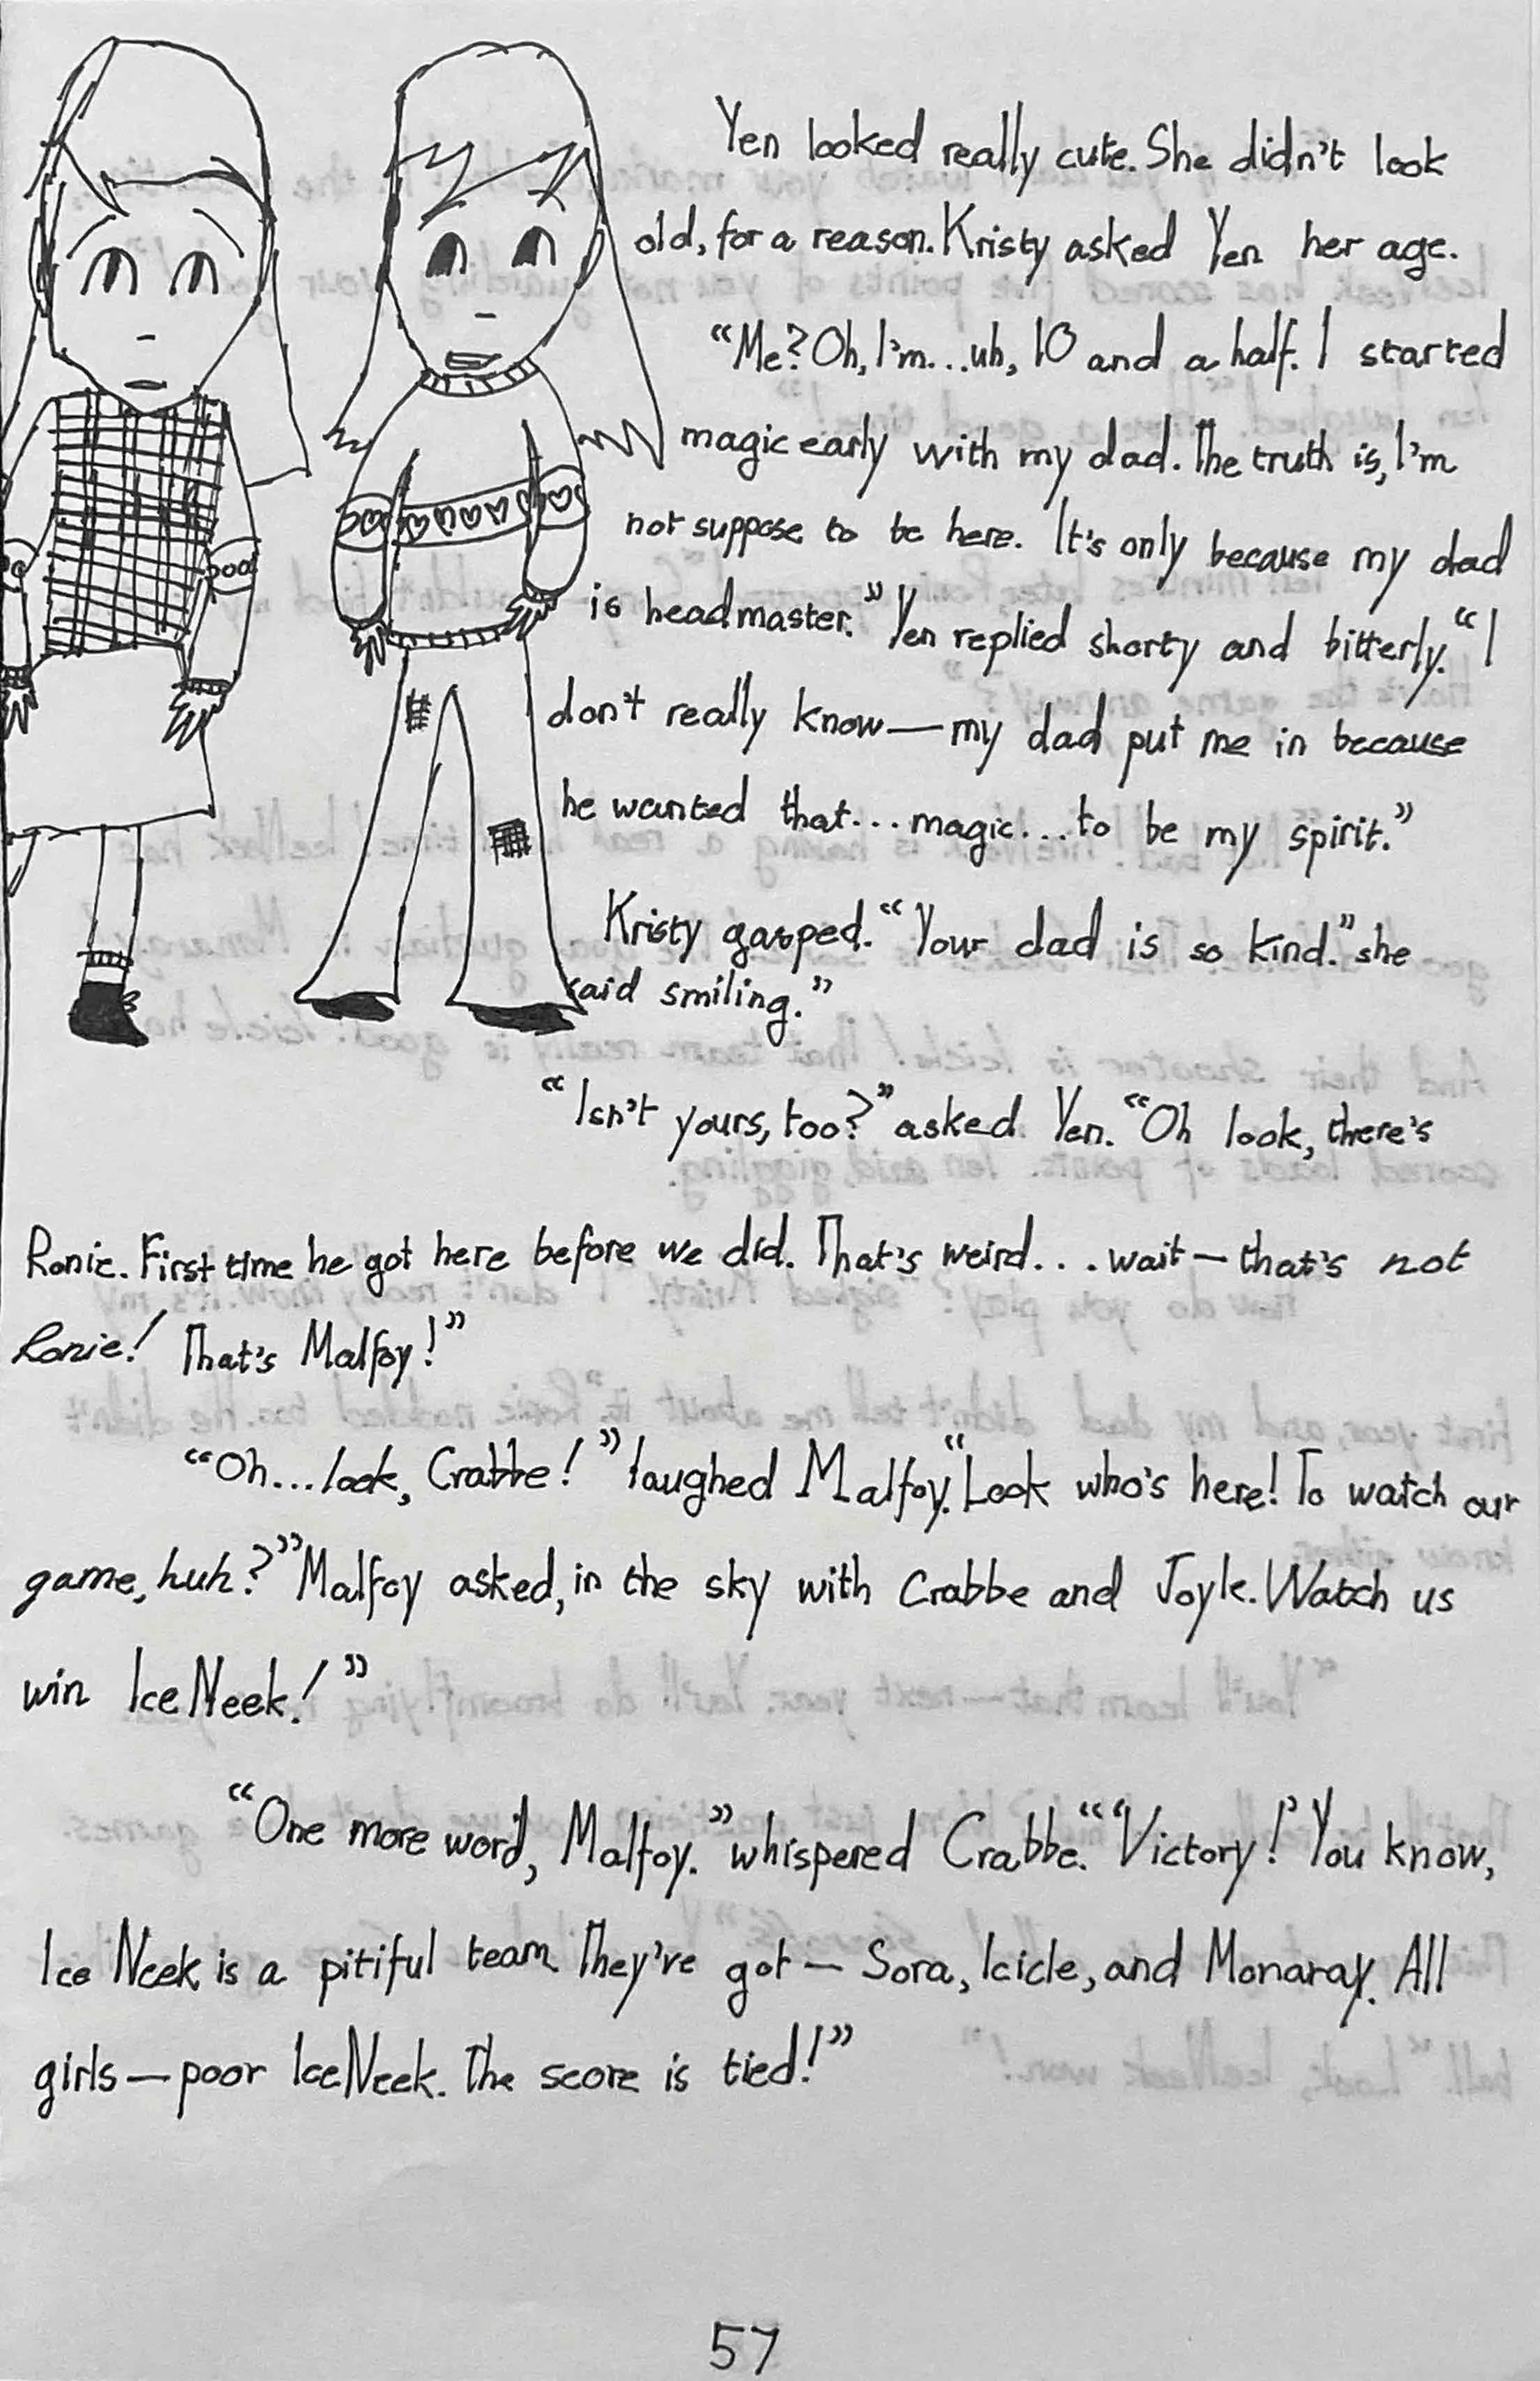 Yen looked really cute. She didn't look
old, for a reason. Kristy asked Yen her age.
"Me? Oh, I'm...uh, 10 and a half. I started
magic early with my dad. The truth is, I'm
not suppose to be here. It's only because my dad
is headmaster." Yen replied shorty and bitterly. "I
don't really know—my dad put me in because
he wanted that...magic...to be my spirit."
Kristy gasped. "Your dad is so kind." she
said smiling."
"Isn't yours, too?" asked Yen. "Oh look, there's
Ronie. First time he got here before we did. That's weird....wait—that's not
Ronie! That's Malfoy!"
"Oh...look, Crabbe!" laughed Malfoy. "Look who's here! To watch our
game, huh?" Malfoy asked, in the sky with Crabbe and Joyle. Watch us
win IceNeek!"
"One more word, Malfoy." whispered Crabbe. "'Victory!' You know,
Ice Neek is a pitiful team. They've got—Sora, Icicle, and Monaray. All
girls—poor IceNeek. The score is tied!"
57